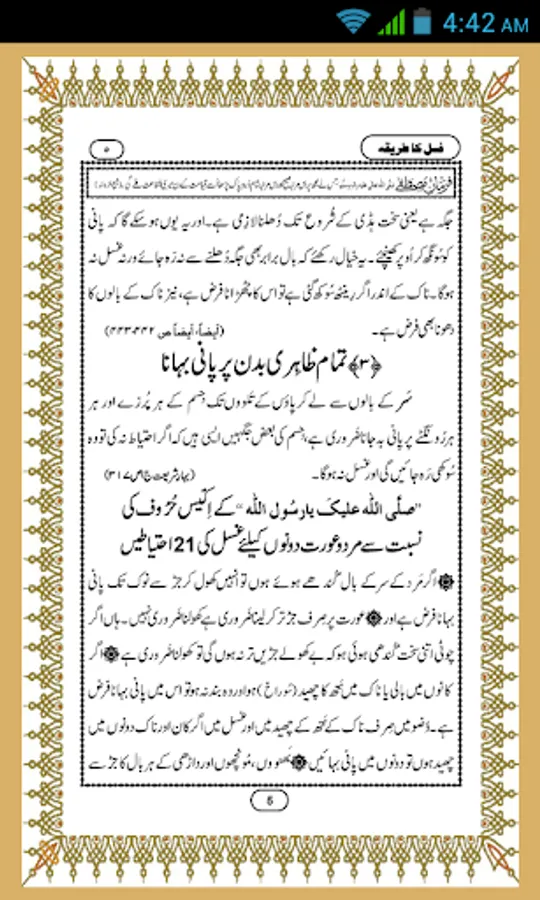 4:42 AM
غسل کا طریقہ
۵
فرمانِ مصطفٰے
جگہ ہے یعنی سخت ہڈی کے شُروع تک دُھلنا لازِمی ہے۔ اور یہ یوں ہو سکے گا کہ پانی
کو سُونگھ کر اُوپر کھینچئے۔ یہ خیال رکھئے کہ بال برابر بھی جگہ دُھلنے سے نہ رَہ جائے ورنہ غسل نہ
ہوگا۔ ناک کے اندر اگر رِینٹھ سُوکھ گئی ہے تو اس کا چُھڑانا فرض ہے، نیز ناک کے بالوں کا
دھونا بھی فرض ہے۔ (اَیضاً، اَیضاً ص ۴۴۲، ۴۴۳)
﴿۳﴾ تمام ظاہِری بدن پر پانی بہانا
سَر کے بالوں سے لے کر پاؤں کے تَلووں تک جِسم کے ہر پُرزے اور ہر
ہر رُونگٹے پر پانی بہ جانا ضَروری ہے، جِسم کی بعض جگہیں ایسی ہیں کہ اگر احتیاط نہ کی تو وہ
سُوکھی رَہ جائیں گی اور غسل نہ ہوگا۔ (بہارِ شریعت ج۱ ص ۳۱۷)
"صلَّی اللہ علیکَ یارسُولَ اللہ" کے اِکّیس حُرُوف کی
نسبت سے مرد و عورت دونوں کیلئے غسل کی 21 احتیاطیں
اگر مَرد کے سر کے بال گُندھے ہوئے ہوں تو انہیں کھول کر جڑ سے نوک تک پانی
بہانا فرض ہے اور عورت پر صِرف جڑ تر کر لینا ضَروری ہے کھولنا ضَروری نہیں۔ ہاں اگر
چوٹی اتنی سخت گُندھی ہوئی ہو کہ بے کھولے جڑیں تر نہ ہوں گی تو کھولنا ضَروری ہے اگر
کانوں میں بالی یا ناک میں نَتھ کا چھید (سُوراخ) ہو اور وہ بند نہ ہو تو اس میں پانی بہانا فرض
ہے۔ وُضو میں صِرف ناک کے نَتھ کے چھید میں اور غسل میں اگر کان اور ناک دونوں میں
چھید ہوں تو دونوں میں پانی بہائیں بَھنووں، مُونچھوں اور داڑھی کے ہر بال کا جڑ سے
5